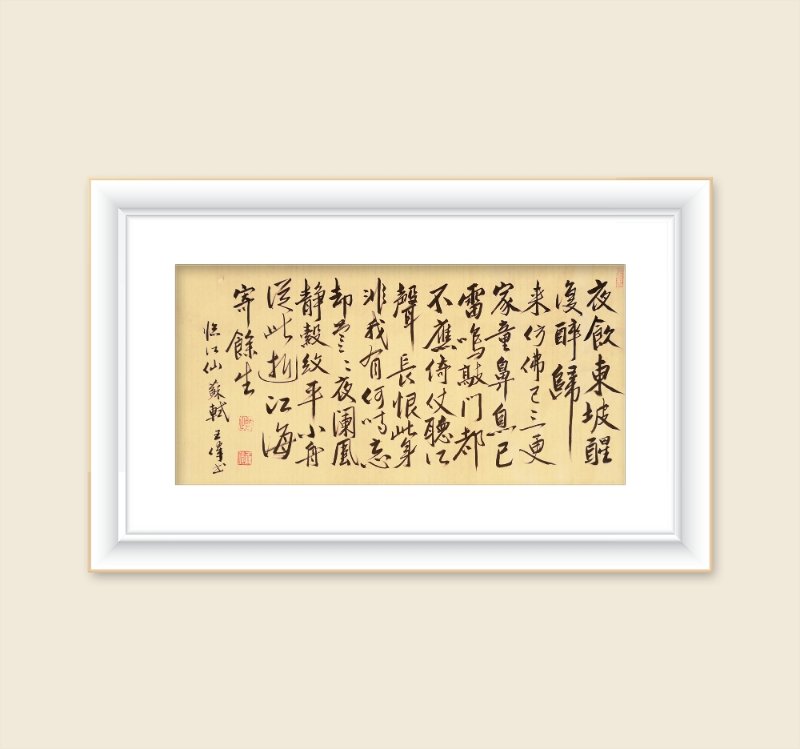 夜飲東坡醒
復醉歸
来仿佛已三更
家童鼻息已
雷鳴敲门都
不應倚仗聽江
聲長恨此身
非我有何时忘
却营々夜阑風
静縠紋平小舟
從此逝江海
寄餘生
临江仙蘇軾
王偉书